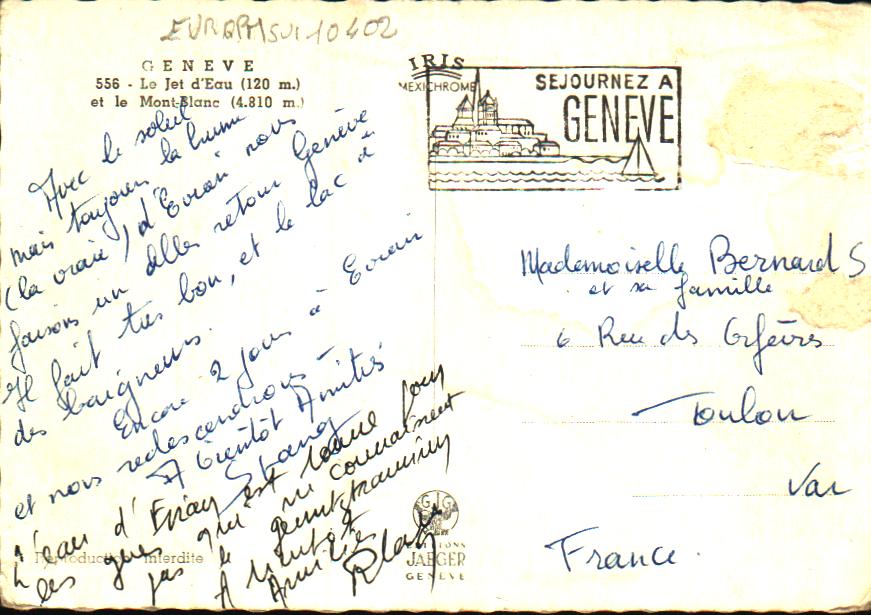 EURAPMSUI10402
GENEVE
556 - Le Jet d'Eau (120 m.)
et le Mont-Blanc (4.810 m.)
IRIS
MEXICHROME
SEJOURNEZ A
GENEVE
Avec le soleil
mais toujours la brume
(la vraie) d'Evian nous
faisons un aller retour Genève
Il fait très bon, et le lac a
des baigneurs.
Encore 2 jours à Evian
et nous redescendrons -
A bientôt Amitiés
L'eau d'Evian est bonne pour
les gens qui ne connaissent
pas le
A bientôt
Amitiés
Mademoiselle Bernard S
et sa famille
6 Rue des Orfèvres
Toulon
Var
France.
Reproduction interdite
EDITIONS
JAEGER
GENEVE